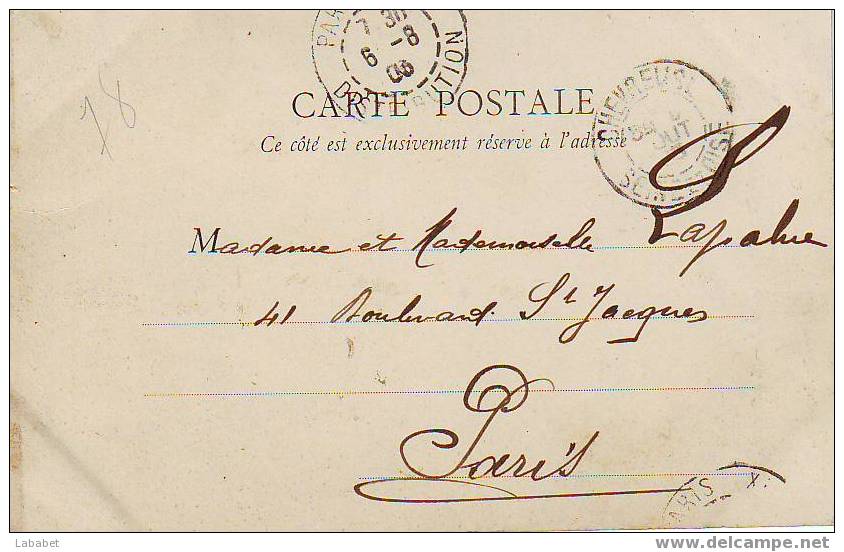 PAR
7 30
6 -8
03
DISTRIBUTION
CARTE POSTALE
Ce côté est exclusivement réserve à l'adresse
CHEVREUSE
SEINE ET OISE
78
Madame et Mademoiselle Lapalue
41 Boulevard St Jacques
Paris
PARIS X.
Lababet
www.delcampe.net